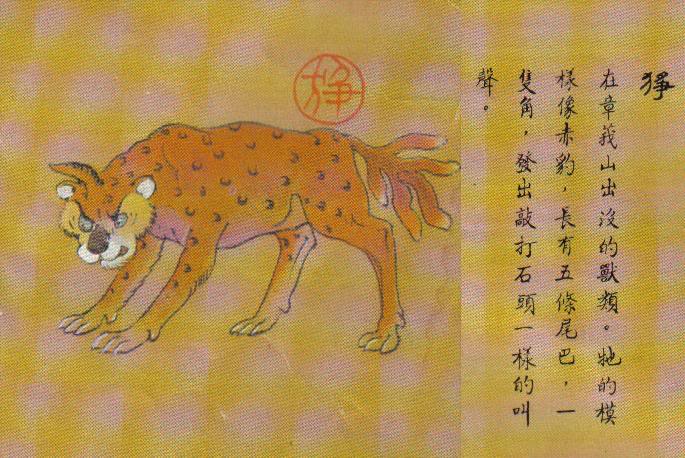 猙
在章莪山出沒的獸類。牠的模
樣像赤豹，長有五條尾巴，一
隻角，發出敲打石頭一樣的叫
聲。
猙